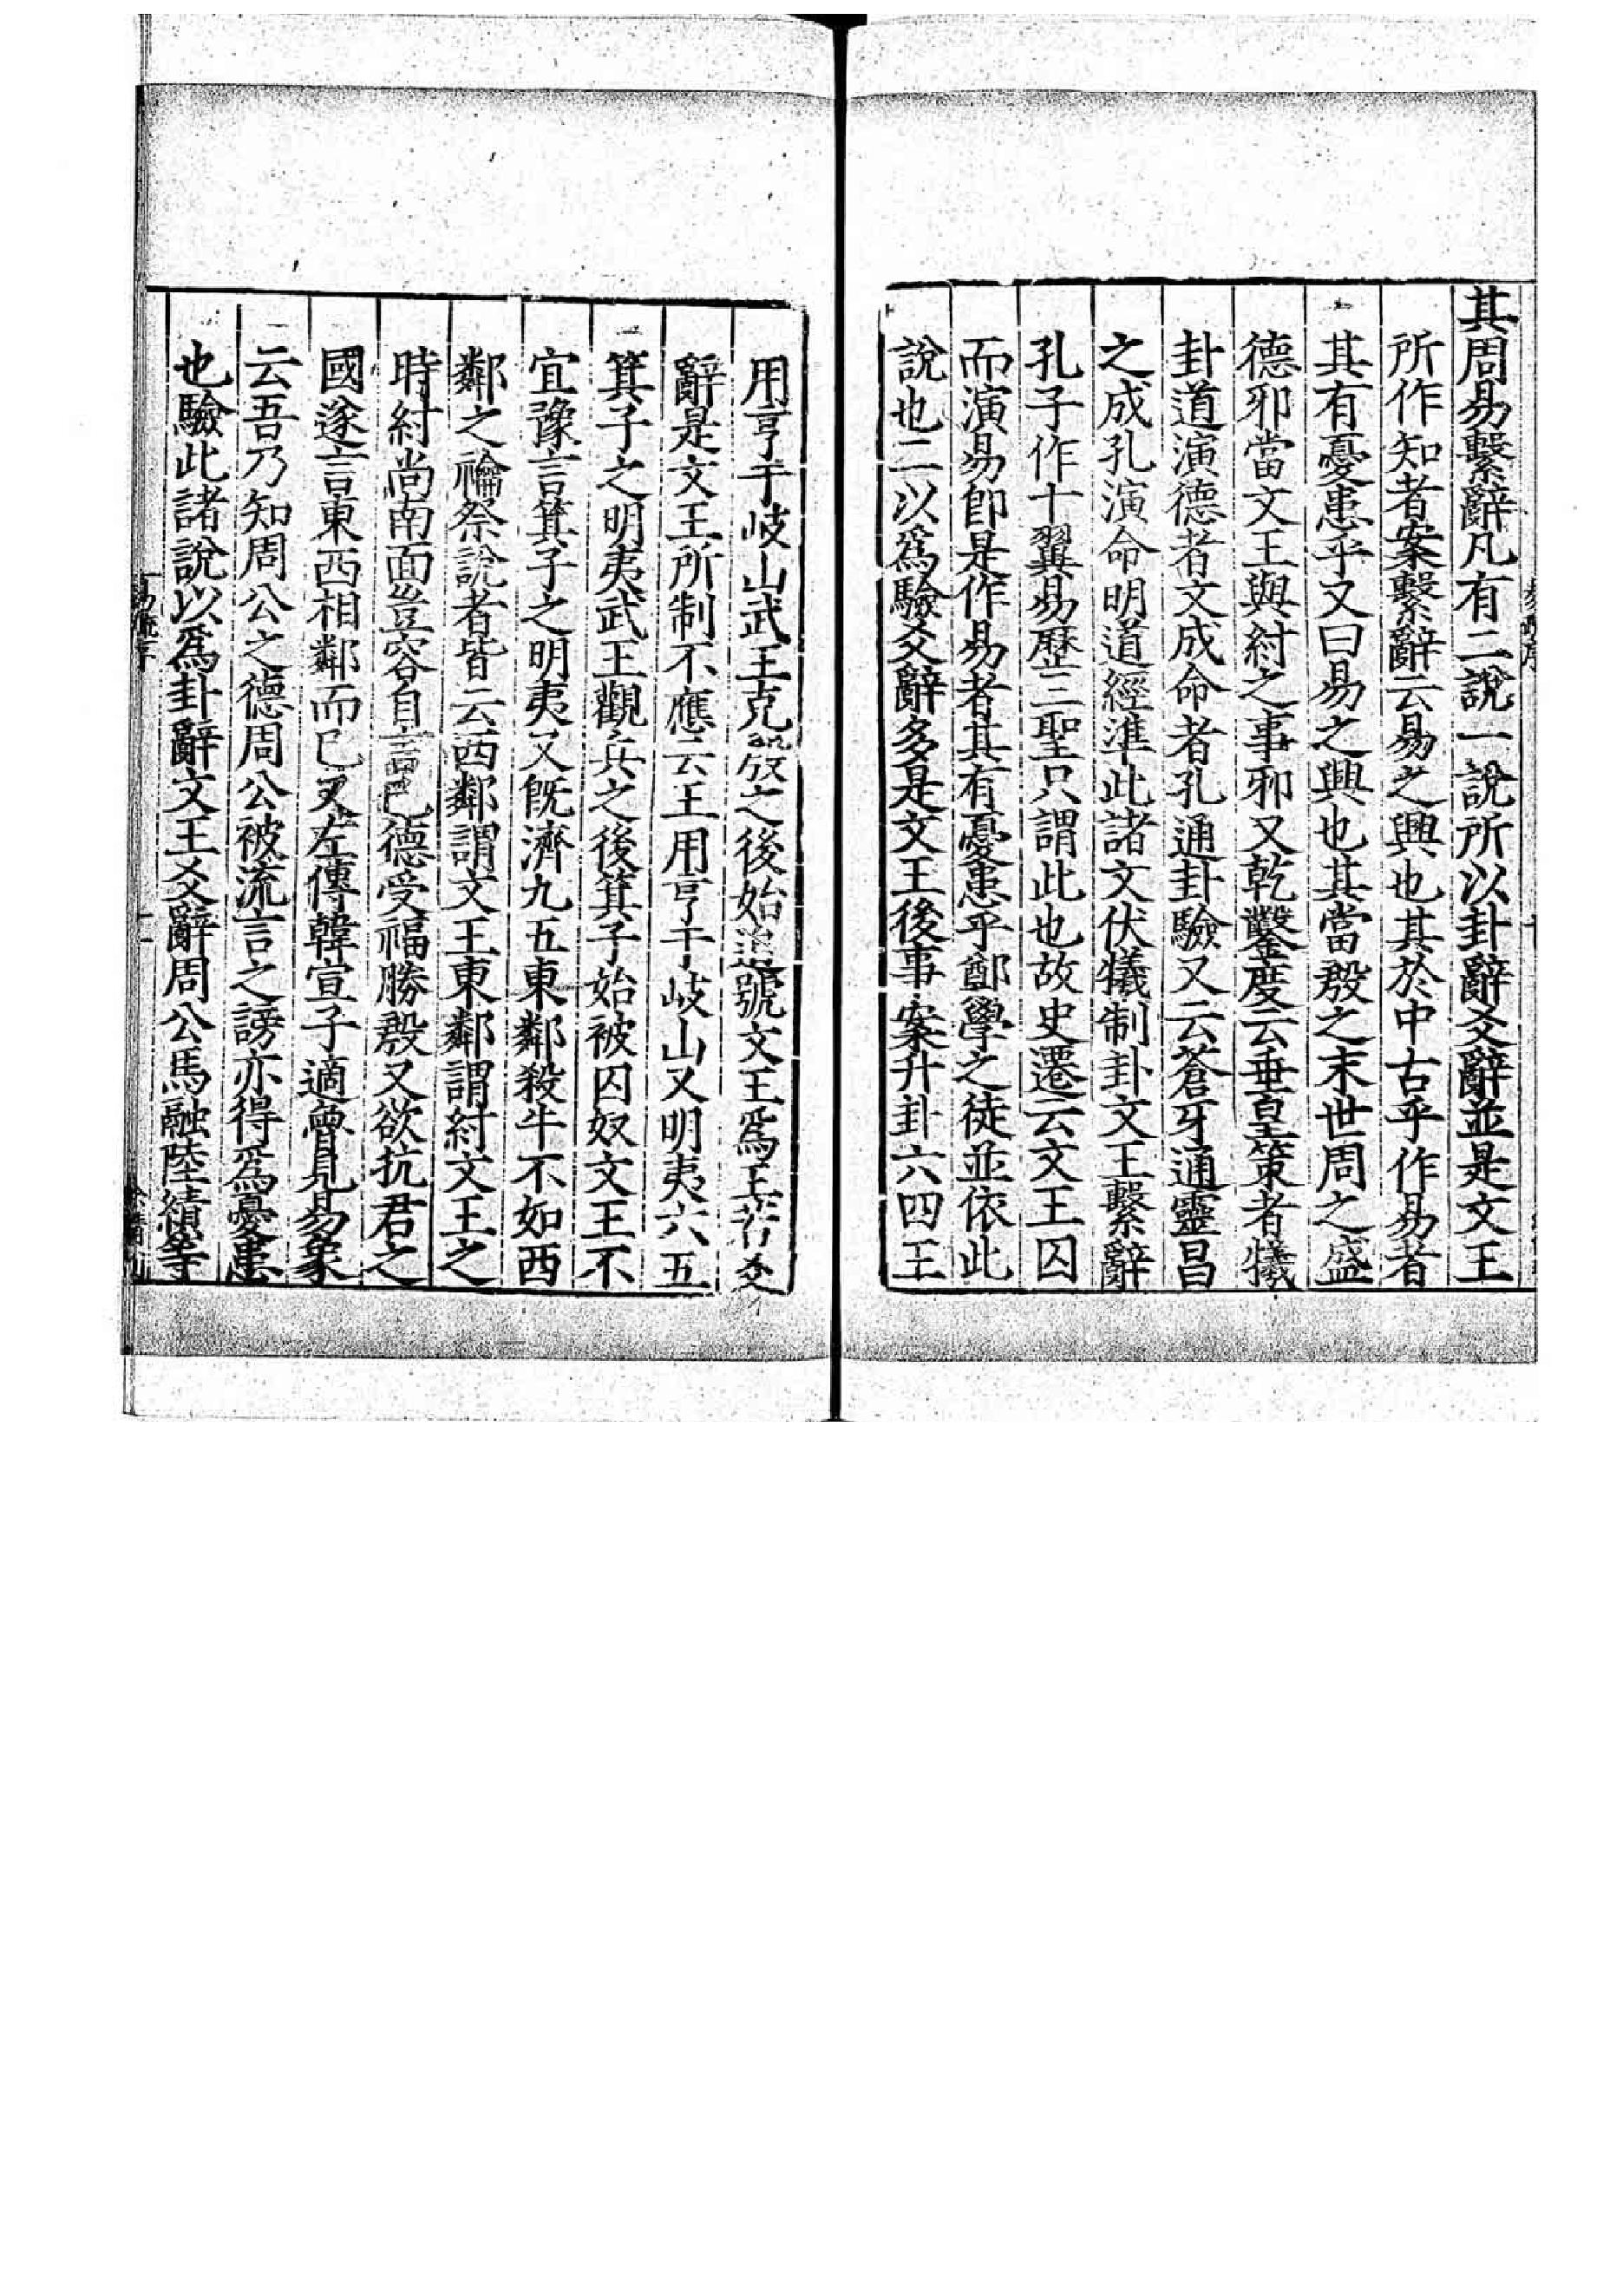 其周易繫辭凡有二說一說所以卦辭爻辭並是文王
所作知者案繫辭云易之興也其於中古乎作易者
其有憂患乎又曰易之興也其當殷之末世周之盛
德邪當文王與紂之事邪又乾鑿度云垂皇策者犧
卦道演德者文成命者孔通卦驗又云蒼牙通靈昌
之成孔演命明道經準此諸文伏犧制卦文王繫辭
孔子作十翼易歷三聖只謂此也故史遷云文王囚
而演易即是作易者其有憂患乎鄭學之徒並依此
說也二以爲驗爻辭多是文王後事案升卦六四王
用亨于岐山武王克殷之後始追號文王爲王若爻
辭是文王所制不應云王用亨于岐山又明夷六五
箕子之明夷武王觀兵之後箕子始被囚奴文王不
宜豫言箕子之明夷又旣濟九五東鄰殺牛不如西
鄰之禴祭說者皆云西鄰謂文王東鄰謂紂文王之
時紂尚南面豈容自言己德受福勝殷又欲抗君之
國遂言東西相鄰而已又左傳韓宣子適魯見易象
云吾乃知周公之德周公被流言之謗亦得爲憂患
也驗此諸說以爲卦辭文王爻辭周公馬融陸績等